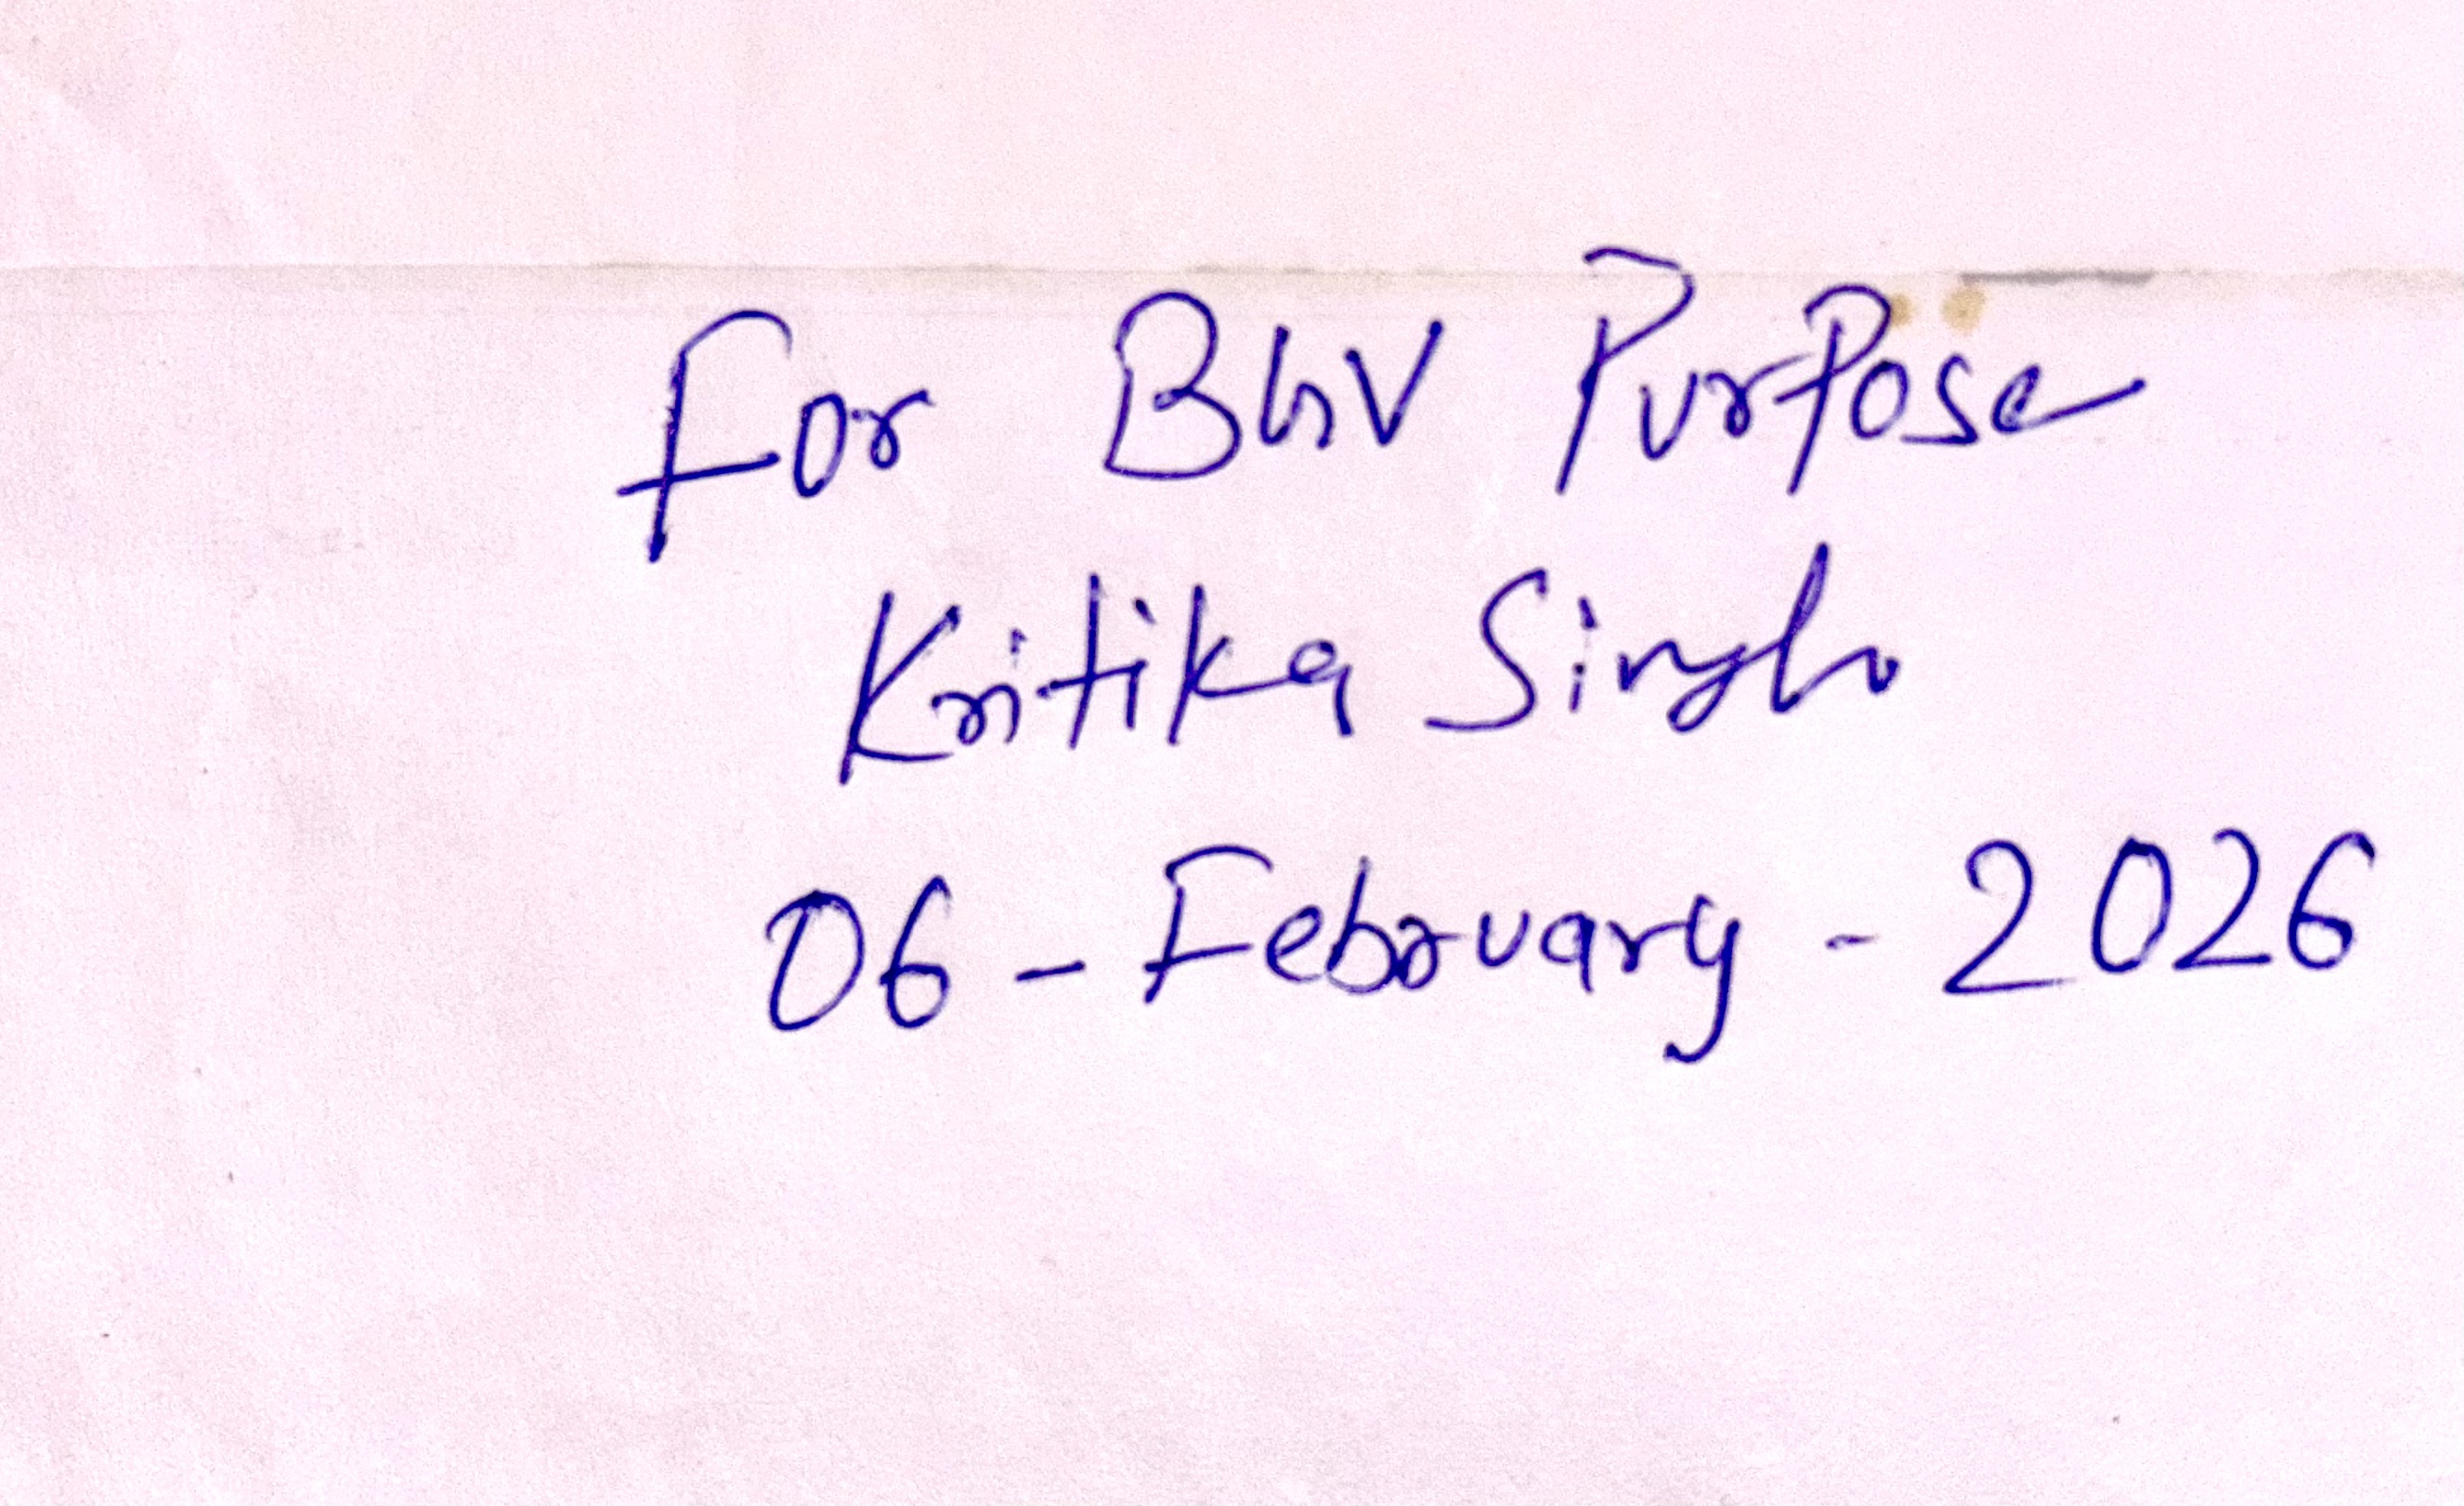 For BGV PurPose
Kritika Singh
06-February-2026